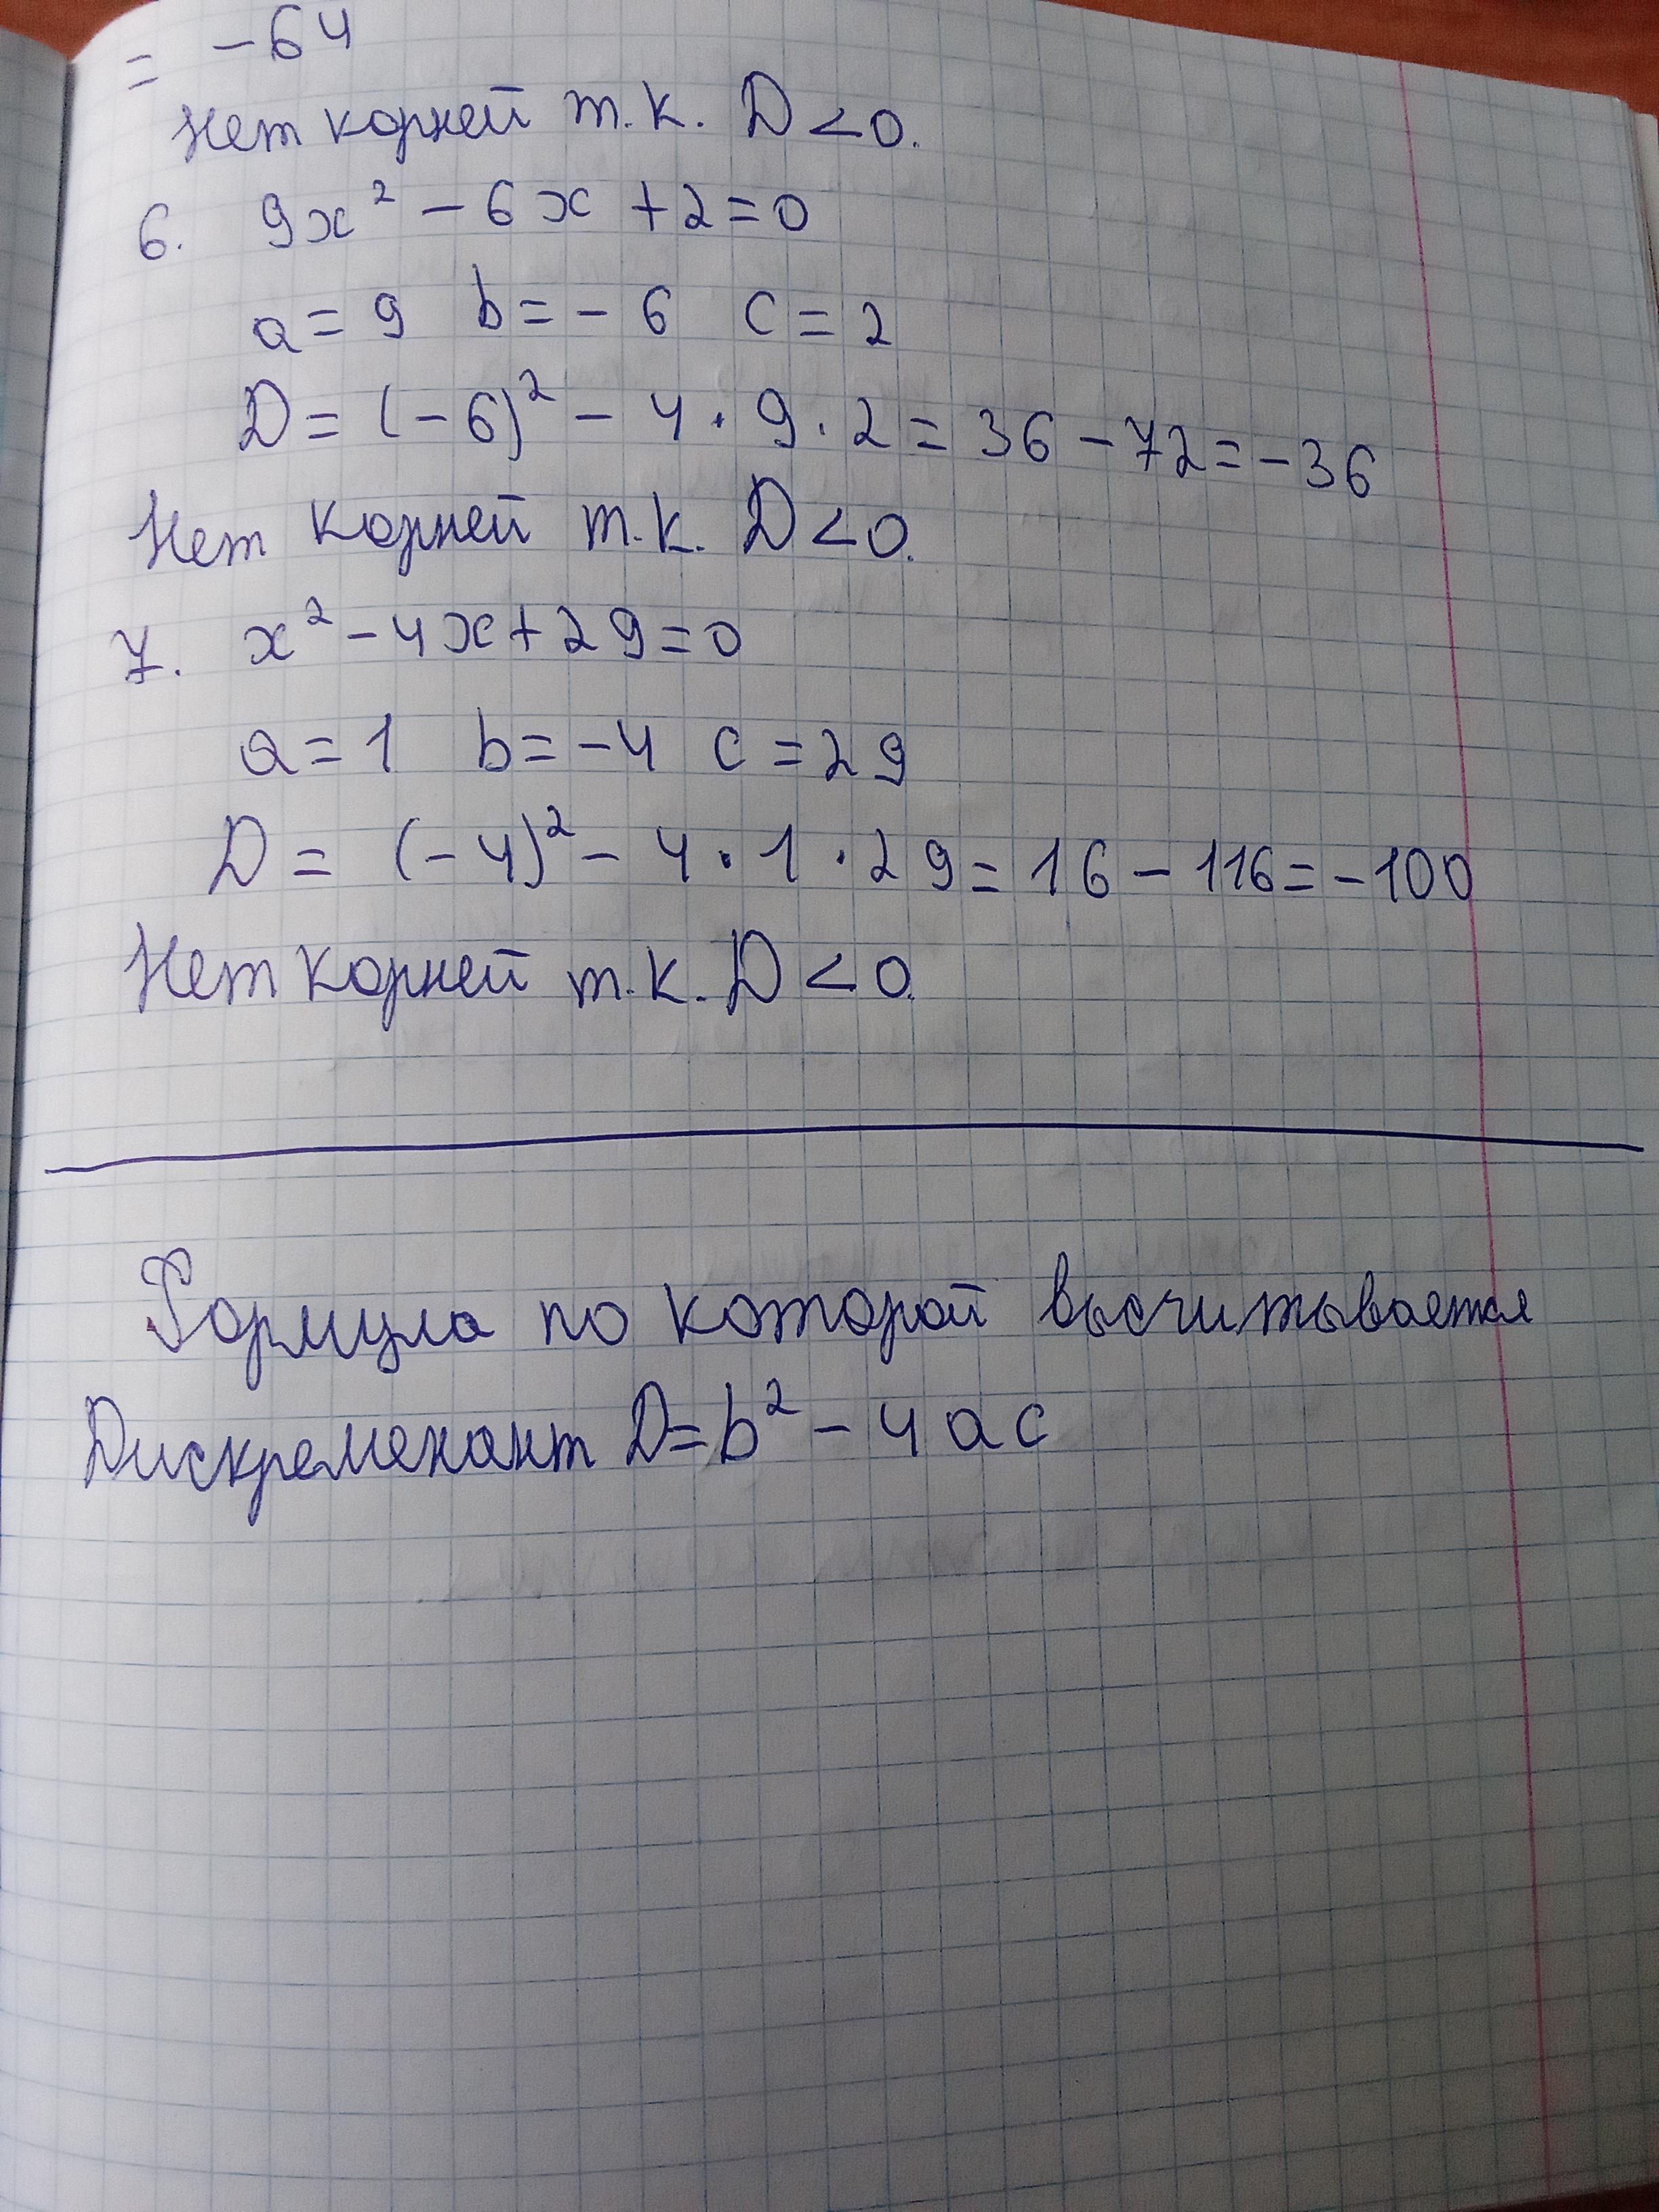 = -64
Нет корней т.к. D<0.
6. 9x² - 6x + 2 = 0
a = 9 b = - 6 c = 2
D = (-6)² - 4 · 9 · 2 = 36 - 72 = -36
Нет корней т.к. D<0.
7. x² - 4x + 29 = 0
a = 1 b = -4 c = 29
D = (-4)² - 4 · 1 · 29 = 16 - 116 = -100
Нет корней т.к. D<0.
Формула по которой высчитывается
Дискременант D=b² - 4ac